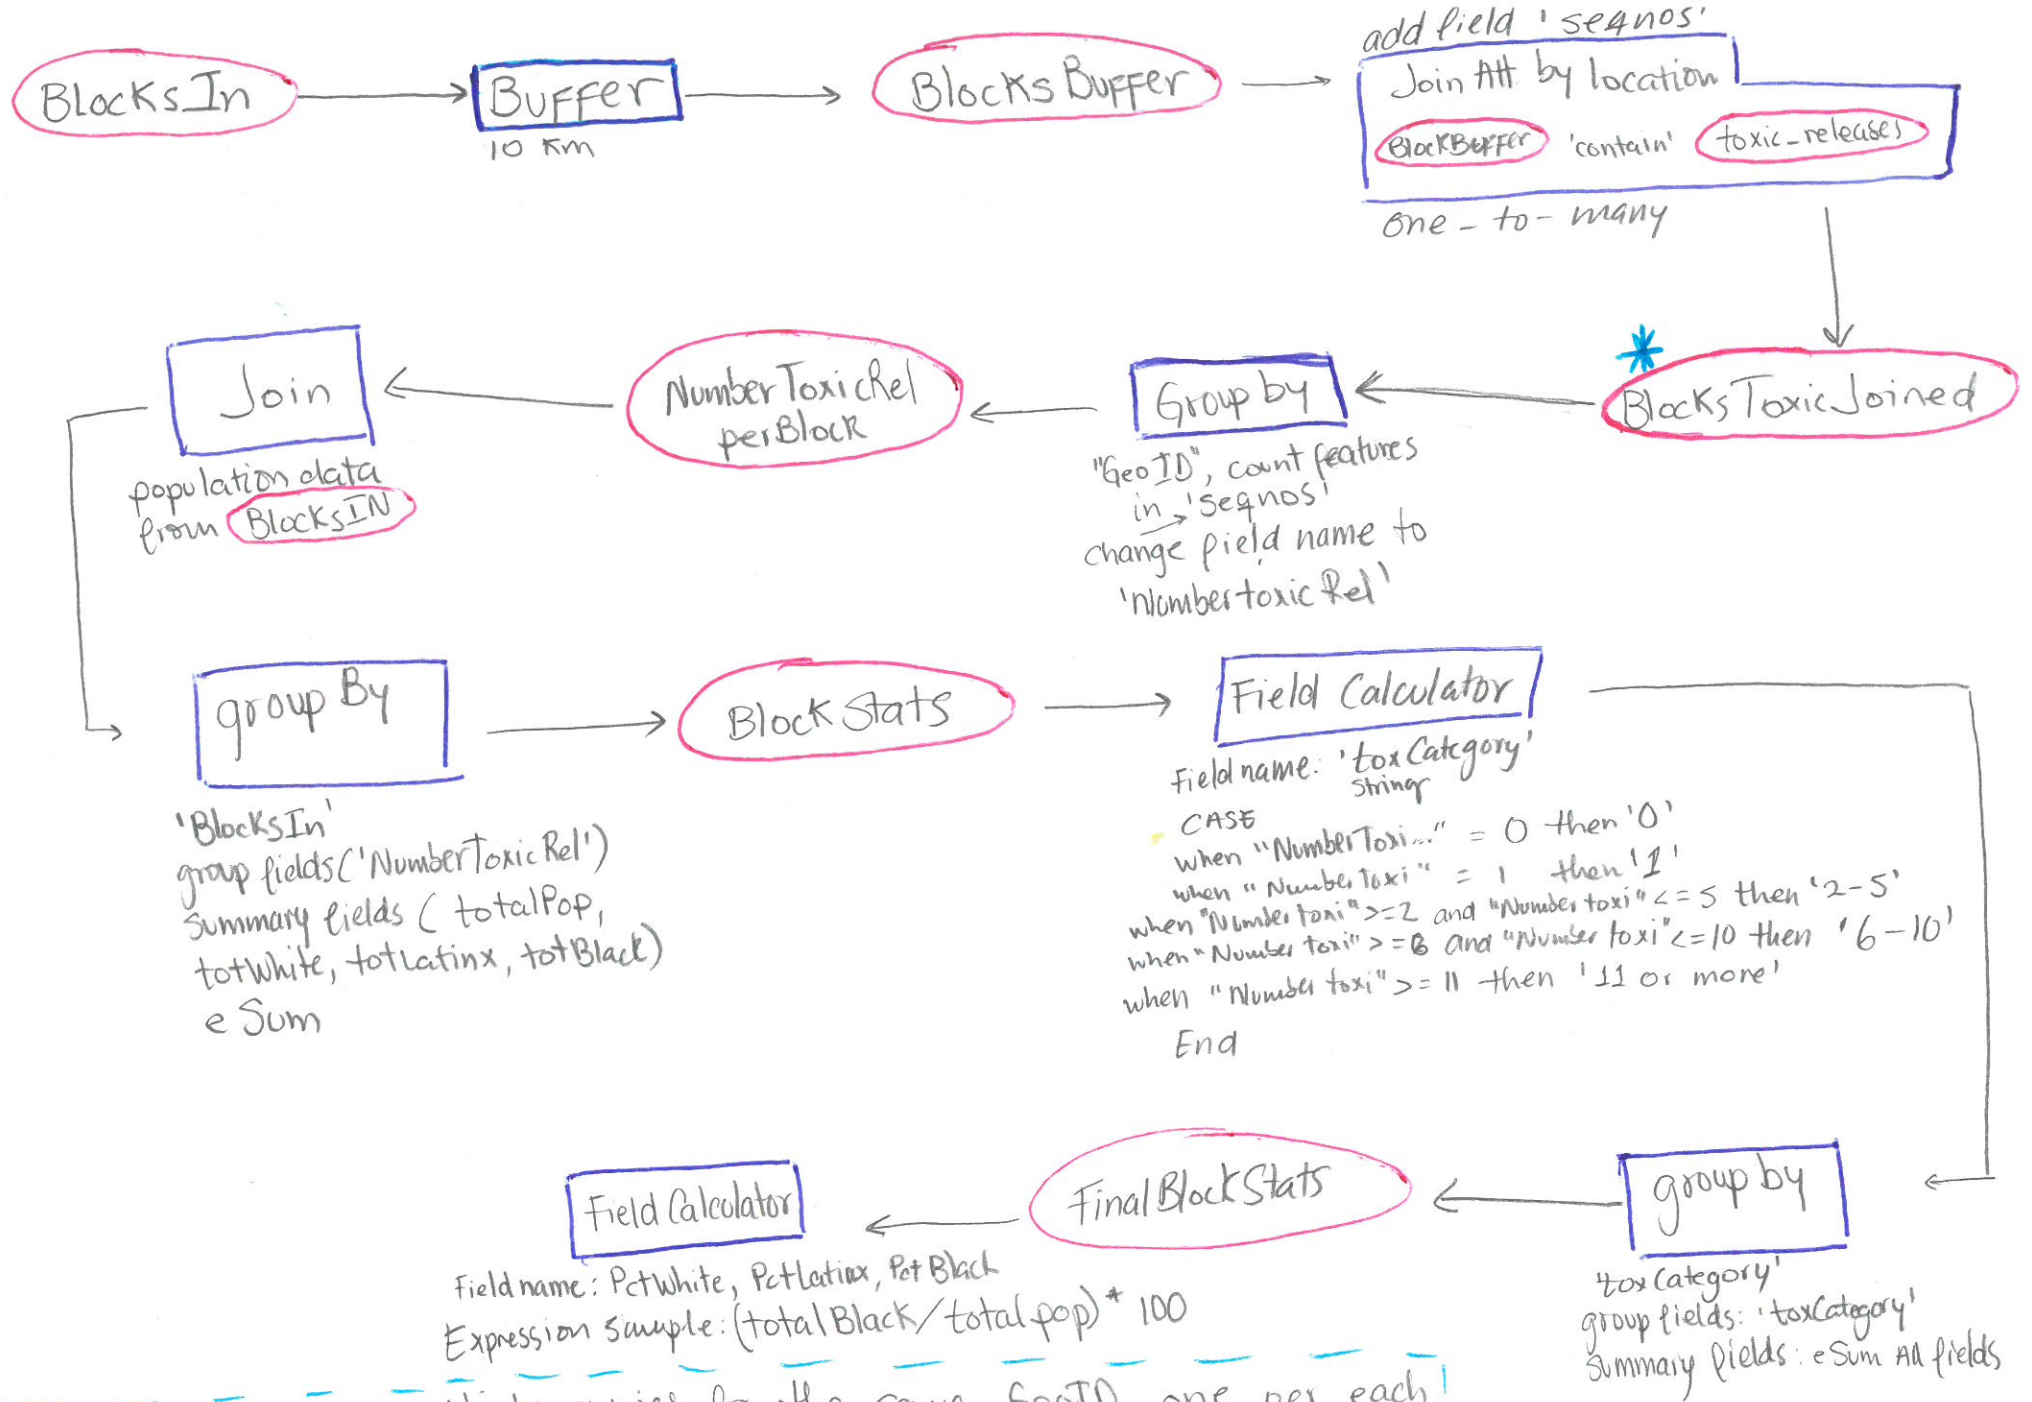 BlocksIn
Buffer
10 km
BlocksBuffer
add field 'seqnos'
Join Att. by location
BlockBuffer 'contain' toxic_releases
one-to-many
BlocksToxicJoined
Group by
"GeoID", count features
in 'seqnos'
change field name to
'NumbertoxicRel'
NumberToxicRel
perBlock
Join
population data
from BlocksIN
group By
'BlocksIn'
group fields('NumberToxicRel')
summary fields ( totalPop,
totWhite, totLatinx, totBlack)
e Sum
BlockStats
Field Calculator
Field name: 'toxCategory'
string
CASE
when "NumberToxi..." = 0 then '0'
when "NumberToxi" = 1 then '1'
when "Numbertoxi" >=2 and "Numbertoxi" <=5 then '2-5'
when "Numbertoxi" >=6 and "Numbertoxi" <=10 then '6-10'
when "Numbertoxi" >= 11 then '11 or more'
End
group by
'toxCategory'
group fields: 'toxCategory'
summary fields: e Sum All fields
FinalBlockStats
Field Calculator
Field name: PctWhite, PctLatinx, PctBlack
Expression sample: (totalBlack/totalpop) * 100
same GeoID, one per each